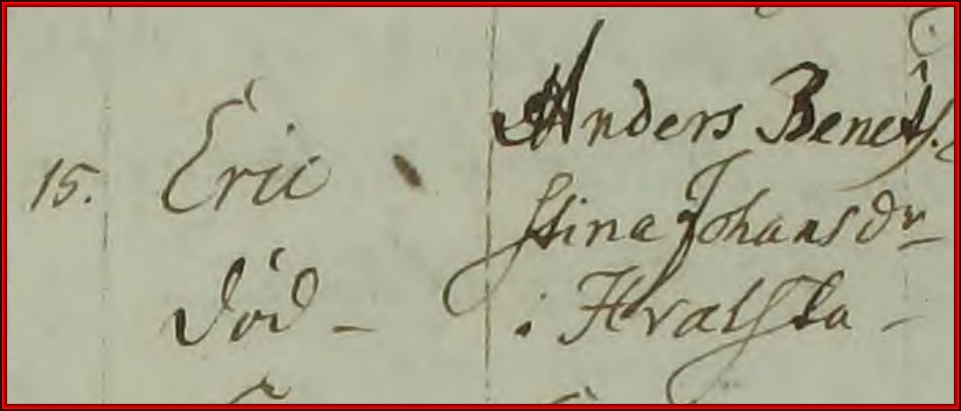 15. Eric Anders Benets.
Stina Johansdr
Död – i Hvalsta –